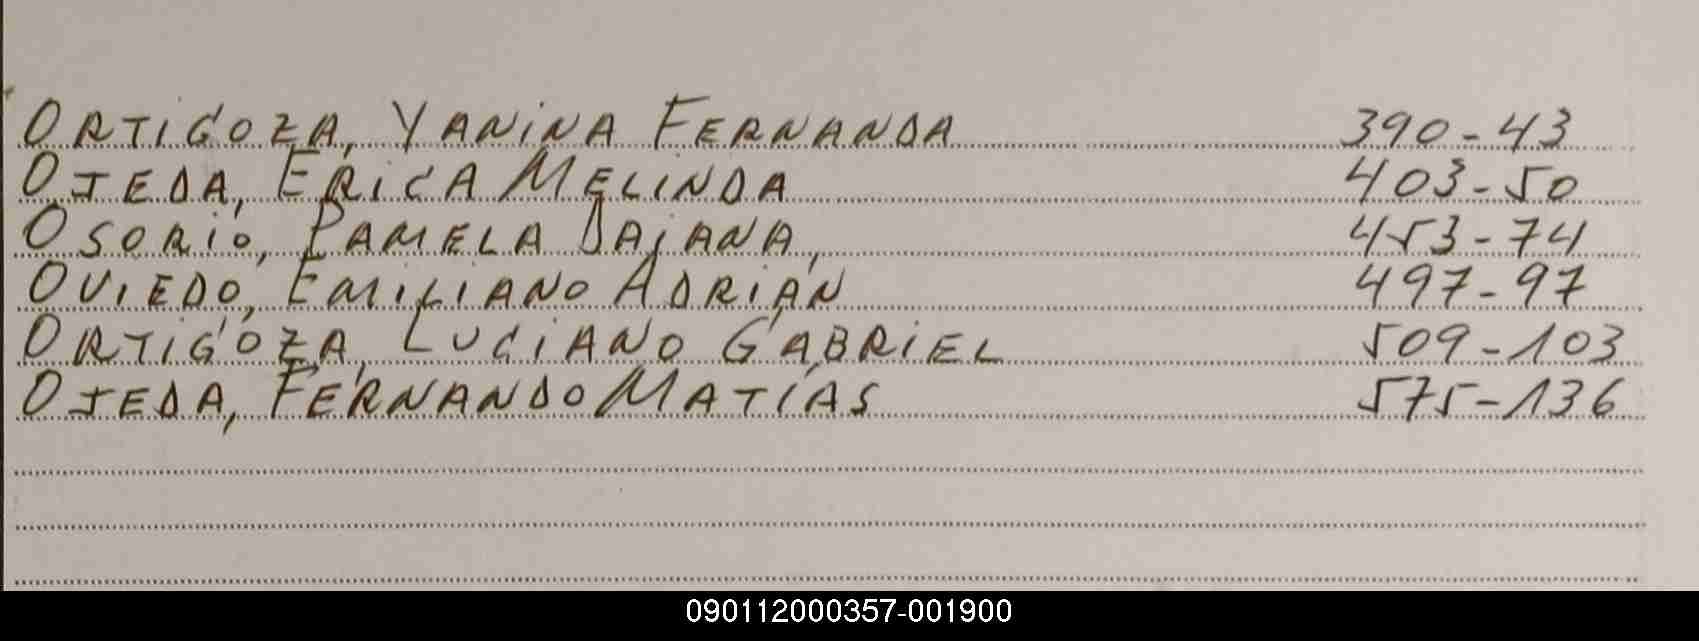 ORTIGOZA, YANINA FERNANDA 390-43
OJEDA, ERICA MELINDA 403-50
OSORIO, PAMELA DAIANA, 453-74
OVIEDO, EMILIANO ADRIÁN 497-97
ORTIGOZA, LUCIANO GABRIEL 509-103
OJEDA, FERNANDO MATÍAS 575-136
090112000357-001900